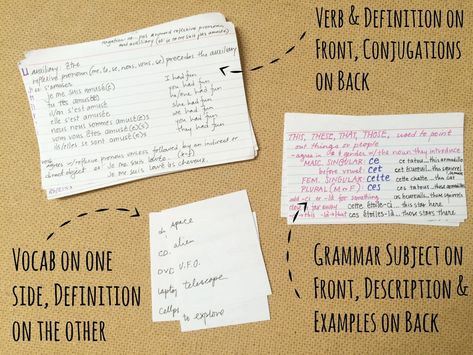 Verb & Definition on
Front, Conjugations
on Back
negation: ne...pas around reflexive pronoun
and auxiliary
auxiliary être
reflexive pronoun (me, te, se, nous, vous, se) precedes the auxiliary
s'amuser
je me suis amusé(e) I had fun
tu t'es amusé(e) you had fun
il/on s'est amusé he/one had fun
elle s'est amusée she had fun
nous nous sommes amusé(e)s we had fun
vous vous êtes amusé(e)(s) you had fun
ils/elles se sont amusé(e)s they had fun
agrees w/reflexive pronoun unless followed by an indirect or
direct object
Je me suis lavé les cheveux.
THIS, THESE, THAT, THOSE, used to point
out things or people
-agree in # & gender w/the noun they introduce
MASC. SINGULAR: ce ce tatou...this armadillo
before vowel: cet cet écureuil...this squirrel
FEM. SINGULAR: cette cette chatte...this cat
PLURAL (M or F): ces ces tatous...these armadillos
add -ci or -là for something
cette étoile-ci...this star here
ces étoiles-là...those stars there
space
alien
CD
DVD U.F.O.
laptop telescope
to explore
Vocab on one
side, Definition
on the other
Grammar Subject on
Front, Description &
Examples on Back